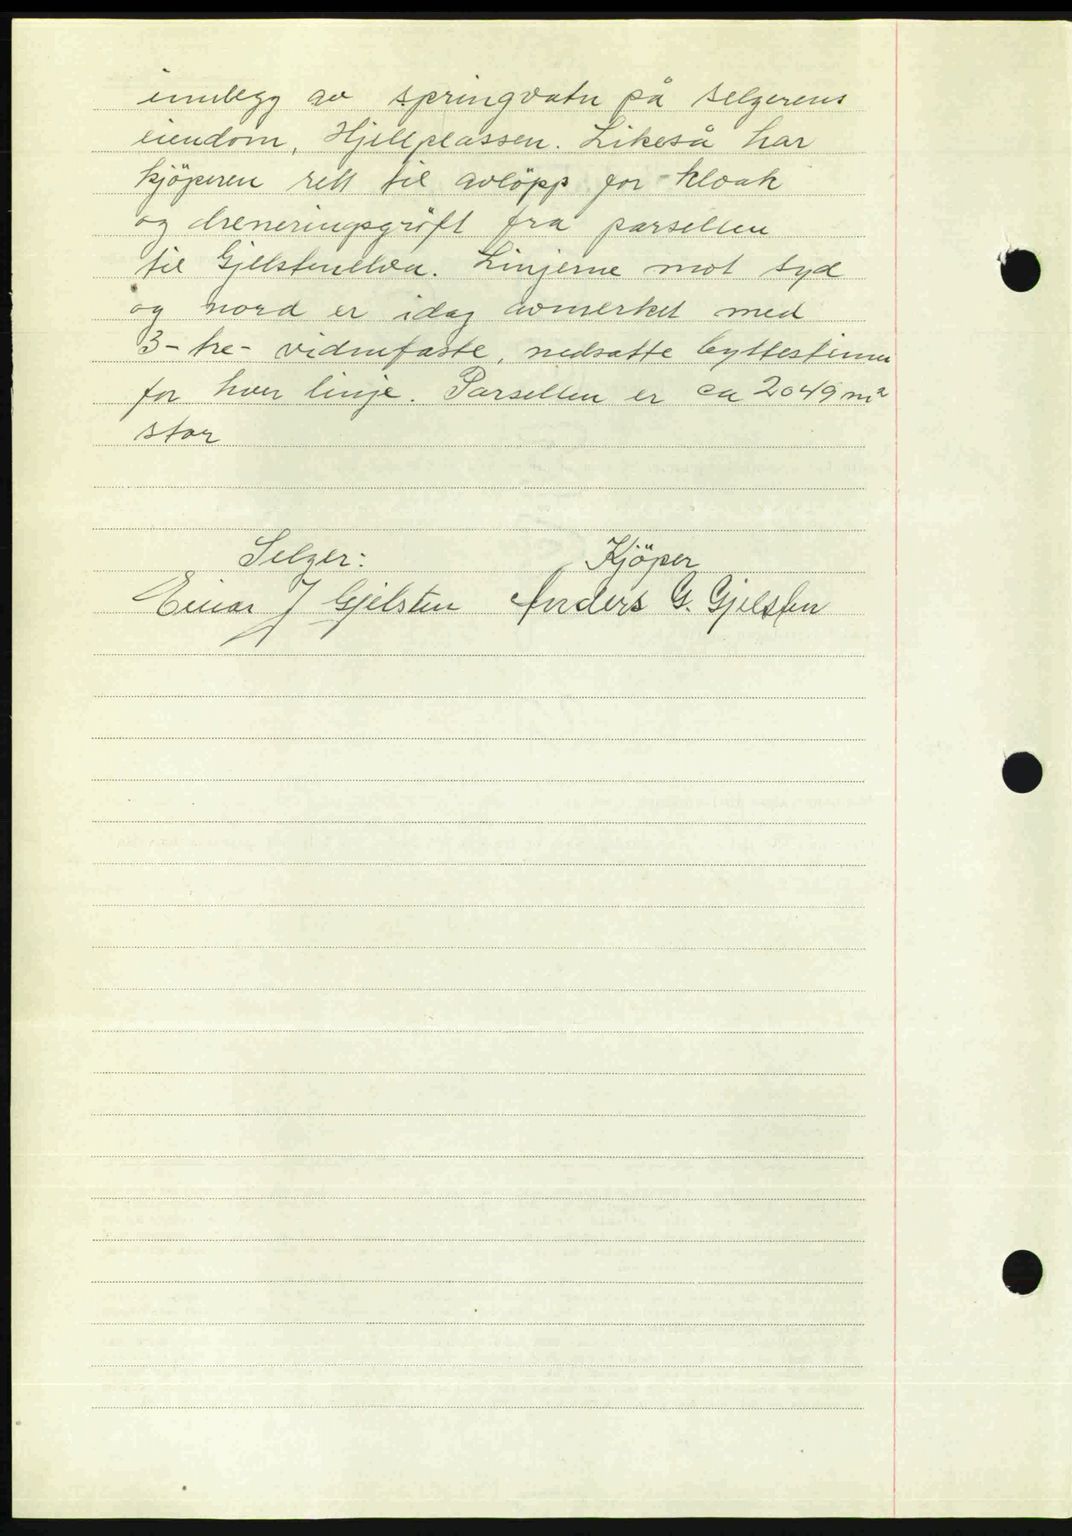 innlegg av springvatn på selgerens
eiendom, Hjellplassen. Likeså har
kjöperen rett til avlöpp for kloak
og dreneringsgröft fra parsellen
til Gjelstenelva. Linjerne mot syd
og nord er idag avmerket med
3-tre- vidnefaste, nedsatte byttesteiner
for hver linje. Parsellen er ca 2049 m²
stor
Selger: Kjöper
Einar J Gjelsten Anders G. Gjelsten